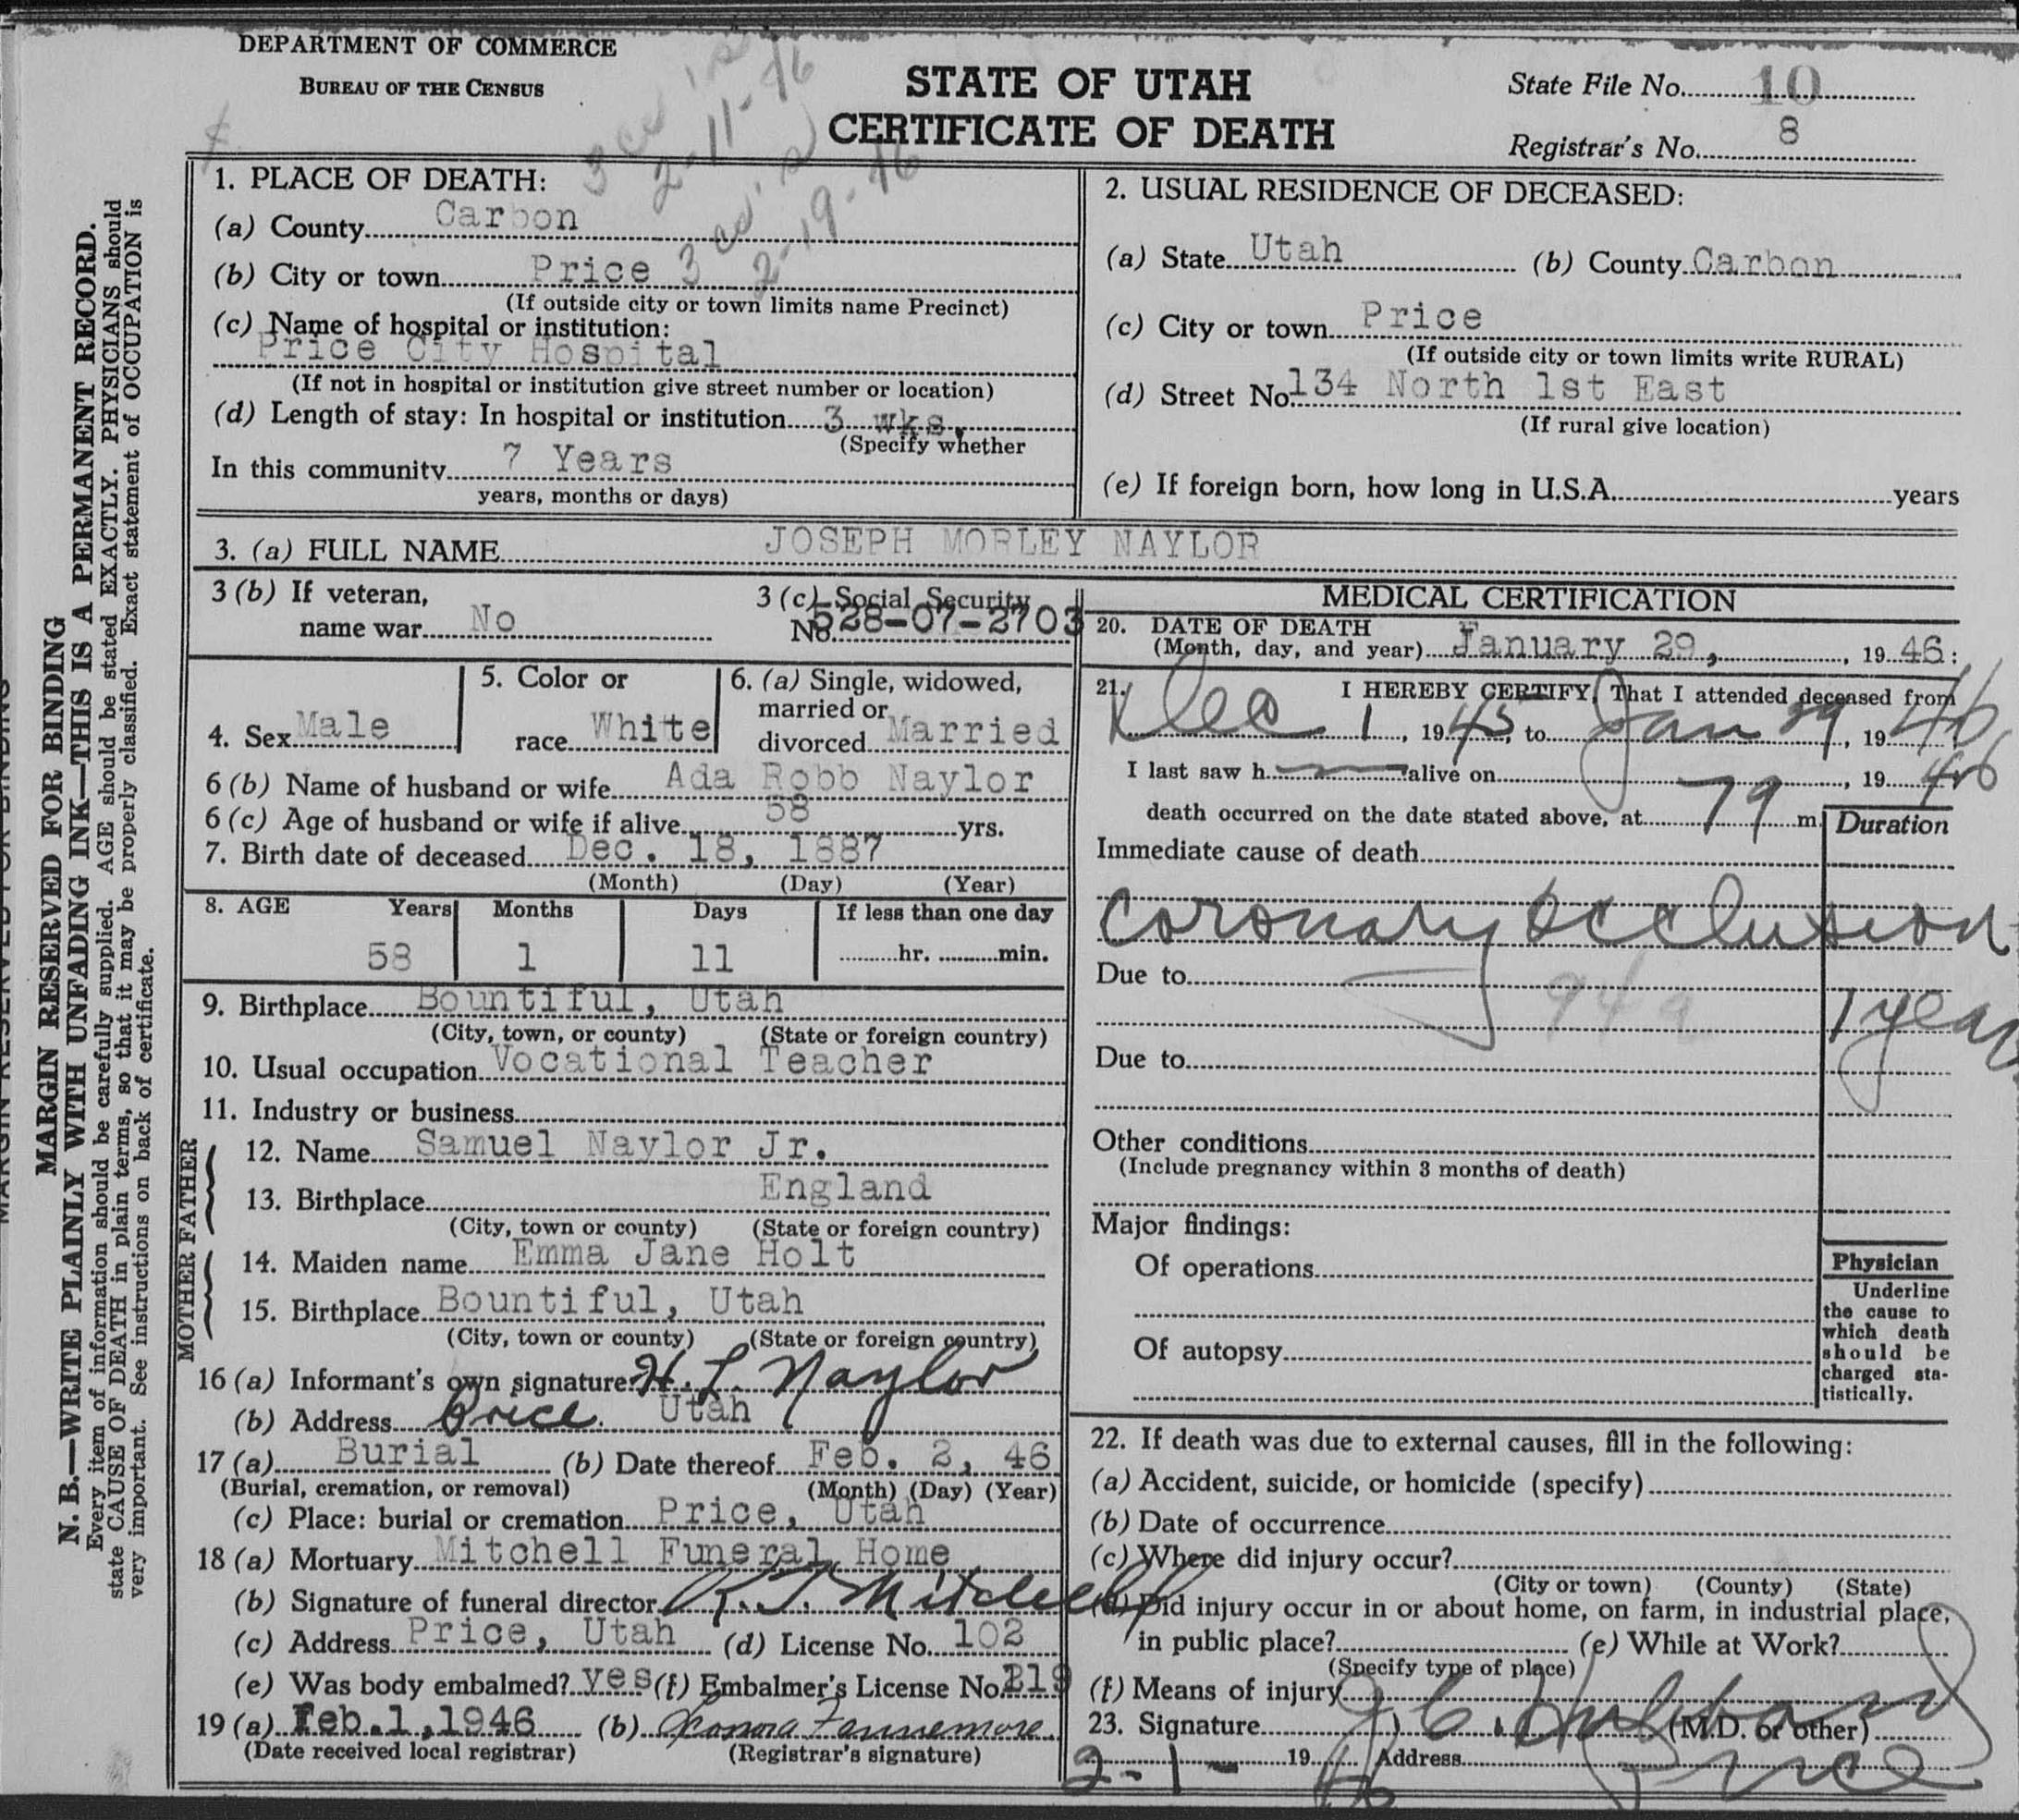 DEPARTMENT OF COMMERCE
BUREAU OF THE CENSUS
STATE OF UTAH
CERTIFICATE OF DEATH
State File No. 10
Registrar's No. 8
2-11-46
2-19-46
MARGIN RESERVED FOR BINDING
N. B.—WRITE PLAINLY WITH UNFADING INK—THIS IS A PERMANENT RECORD.
Every item of information should be carefully supplied. AGE should be stated EXACTLY. PHYSICIANS should
state CAUSE OF DEATH in plain terms, so that it may be properly classified. Exact statement of OCCUPATION is
very important. See instructions on back of certificate.
1. PLACE OF DEATH:
(a) County Carbon
(b) City or town Price
(If outside city or town limits name Precinct)
(c) Name of hospital or institution:
Price City Hospital
(If not in hospital or institution give street number or location)
(d) Length of stay: In hospital or institution 3 wks.
(Specify whether
In this community 7 Years
years, months or days)
2. USUAL RESIDENCE OF DECEASED:
(a) State Utah (b) County Carbon
(c) City or town Price
(If outside city or town limits write RURAL)
(d) Street No. 134 North 1st East
(If rural give location)
(e) If foreign born, how long in U.S.A. years
3. (a) FULL NAME JOSEPH MORLEY NAYLOR
3 (b) If veteran,
name war No
3 (c) Social Security
No. 528-07-2703
4. Sex Male
5. Color or
race White
6. (a) Single, widowed,
married or
divorced Married
6 (b) Name of husband or wife Ada Robb Naylor
6 (c) Age of husband or wife if alive 58 yrs.
7. Birth date of deceased Dec. 18, 1887
(Month) (Day) (Year)
8. AGE Years Months Days If less than one day
58 1 11 hr. min.
9. Birthplace Bountiful, Utah
(City, town, or county) (State or foreign country)
10. Usual occupation Vocational Teacher
11. Industry or business
FATHER
12. Name Samuel Naylor Jr.
13. Birthplace England
(City, town or county) (State or foreign country)
MOTHER
14. Maiden name Emma Jane Holt
15. Birthplace Bountiful, Utah
(City, town or county) (State or foreign country)
16 (a) Informant's own signature: H. L. Naylor
(b) Address Price. Utah
17 (a) Burial (b) Date thereof Feb. 2, 46
(Burial, cremation, or removal) (Month) (Day) (Year)
(c) Place: burial or cremation Price, Utah
18 (a) Mortuary Mitchell Funeral Home
(b) Signature of funeral director Mitchell
(c) Address Price, Utah (d) License No. 102
(e) Was body embalmed? yes (f) Embalmer's License No. 219
19 (a) Feb. 1, 1946 (b)
(Date received local registrar) (Registrar's signature)
MEDICAL CERTIFICATION
20. DATE OF DEATH
(Month, day, and year) January 29, , 19 46:
21. I HEREBY CERTIFY, That I attended deceased from
Dec 1, 1945, to Jan 29, 19 46
I last saw h alive on , 19 46
death occurred on the date stated above, at m.
Duration
Immediate cause of death
Coronary occlusion
Due to 94a
1 year
Due to
Other conditions
(Include pregnancy within 3 months of death)
Major findings:
Of operations
Of autopsy
Physician
Underline
the cause to
which death
should be
charged sta-
tistically.
22. If death was due to external causes, fill in the following:
(a) Accident, suicide, or homicide (specify)
(b) Date of occurrence
(c) Where did injury occur?
(City or town) (County) (State)
(d) Did injury occur in or about home, on farm, in industrial place,
in public place? (e) While at Work?
(Specify type of place)
(f) Means of injury
23. Signature (M.D. or other)
2-1- 19 46 Address Price